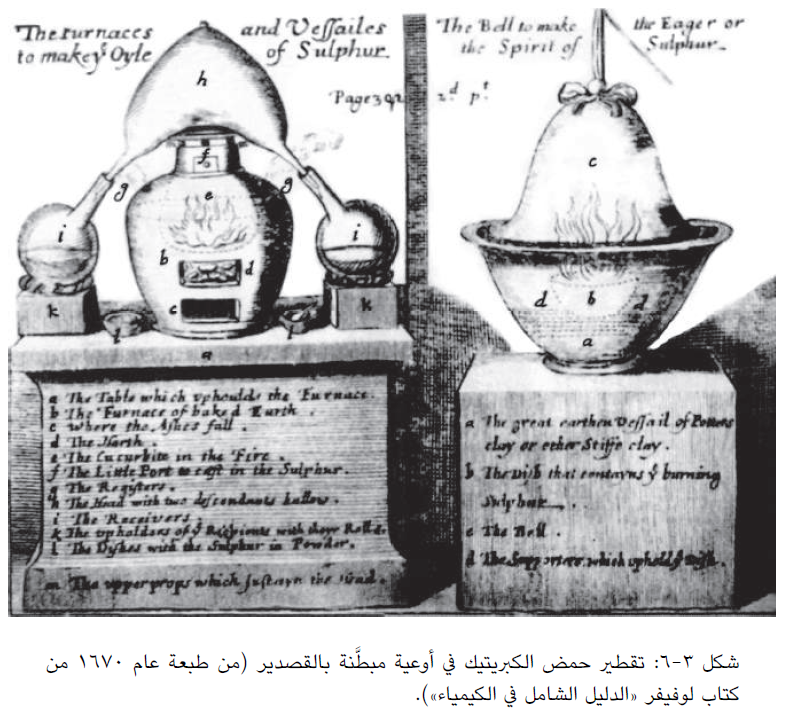 The Furnaces and Vessailes
to make yͤ Oyle of Sulphur
Page 392 2.ᵈ pᵗ.
The Bell to make the Eager or
the Spirit of Sulphur
h
f
g
g
e
i
i
b
d
c
k
k
l
l
a
a The Table which upholds the Furnace.
b The Furnace of baked Earth.
c where the Ashes fall.
d The Harth.
e The Cucurbite in the Fire.
f The Little Port to cast in the Sulphur.
g The Registers.
h The Head with two descendants hallow.
i The Receivers.
k The upholders of yͤ Recipients with their
l The Dyshes with the Sulphur in Powder.
m The upper props which sustayn the Head.
c
d b d
a
a The great earthen Vessail of Potters
clay or other Stiffe clay.
b The Dish that contayns yͤ burning
Sulphur.
c The Bell.
d The Supporters which uphold yͤ Dish.
شكل ٣-٦: تقطير حمض الكبريتيك في أوعية مبطَّنة بالقصدير (من طبعة عام ١٦٧٠ من
كتاب لوفيفر «الدليل الشامل في الكيمياء»).